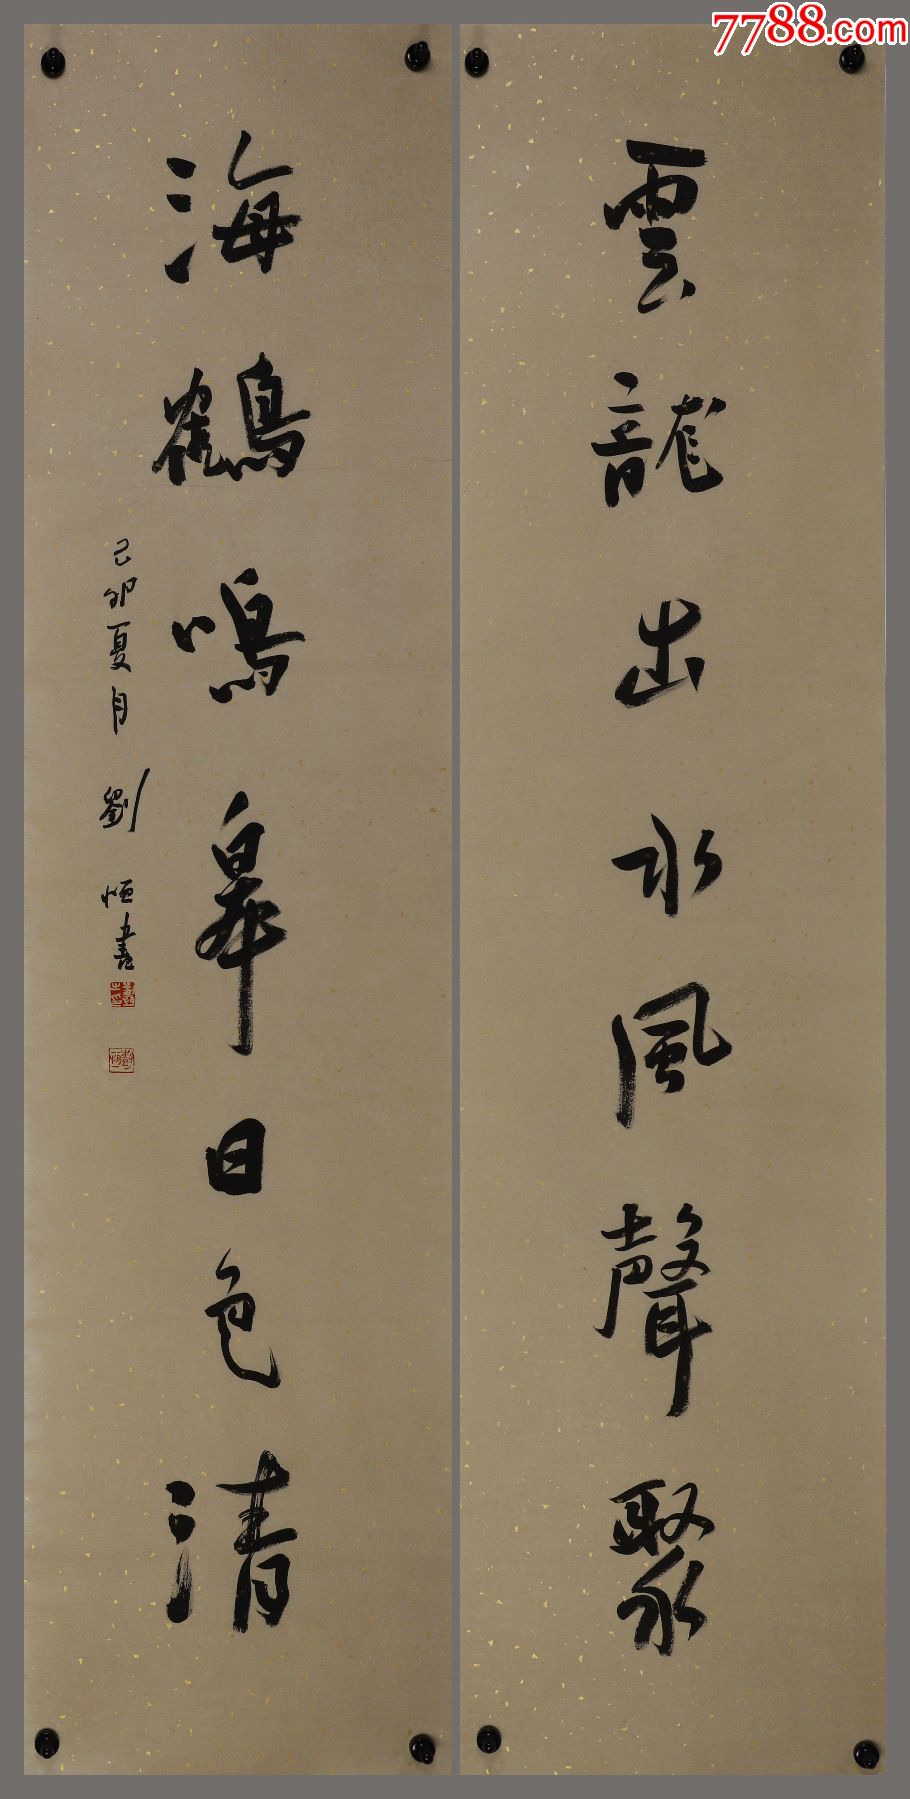 雲龍出水風聲聚
海鶴鳴皋日色清
己卯夏月 劉恒書
7788.com